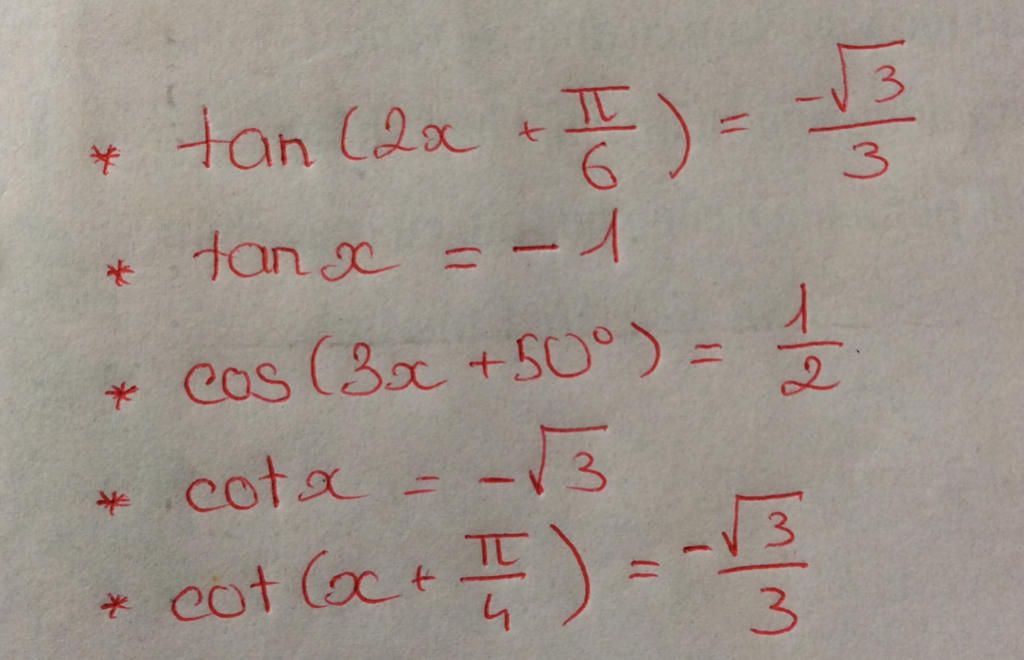 * tan(2x + π/6) = -√3/3
* tan x = -1
* cos(3x + 50°) = 1/2
* cot x = -√3
* cot(x + π/4) = -√3/3